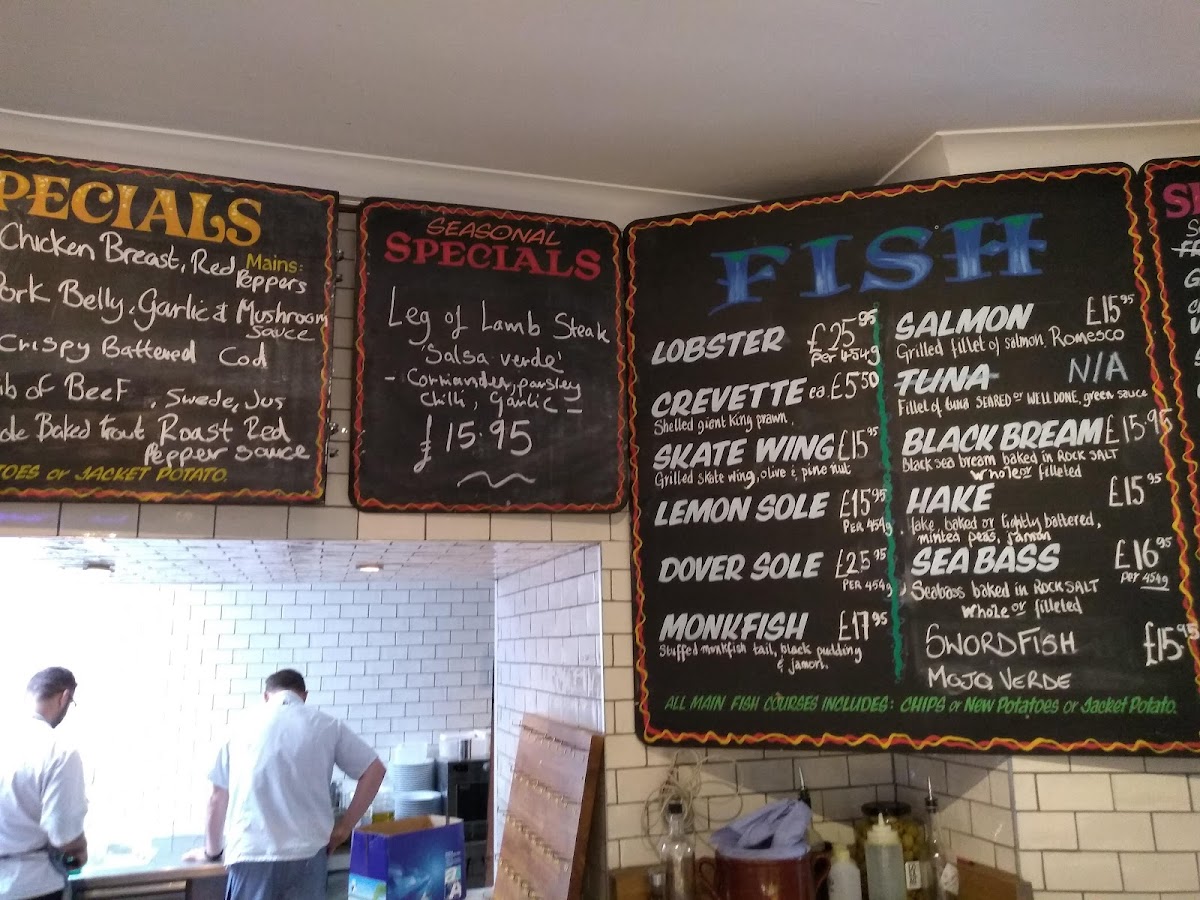 PECIALS
Mains:
Chicken Breast, Red Peppers
Pork Belly, Garlic & Mushroom
Sauce
Crispy Battered Cod
ib of Beef, Swede, Jus
ole Baked trout Roast Red
Pepper sauce
TOES or JACKET POTATO.
SEASONAL
SPECIALS
Leg of Lamb Steak
'Salsa verde'
- Corriander, parsley
Chilli, Garlic -
£15.95
FISH
LOBSTER £25.95
Per 454g
CREVETTE ea. £5.50
Shelled giant king prawn.
SKATE WING £15.95
Grilled skate wing, olive & pine nut
LEMON SOLE £15.95
PER 454g
DOVER SOLE £25.95
PER 454g
MONKFISH £17.95
Stuffed monkfish tail, black pudding
& jamon.
SALMON £15.95
Grilled fillet of salmon, Romesco
TUNA N/A
Fillet of tuna SEARED or WELL DONE, green sauce
BLACK BREAM £15.95
Black sea bream baked in ROCK SALT
Whole or filleted
HAKE £15.95
Hake, baked or lightly battered,
minted peas, jamon
SEA BASS £16.95
Per 454g
Seabass baked in ROCK SALT
Whole or filleted
SWORDFISH £15.95
MOJO VERDE
ALL MAIN FISH COURSES INCLUDES: CHIPS or New Potatoes or Jacket Potato.